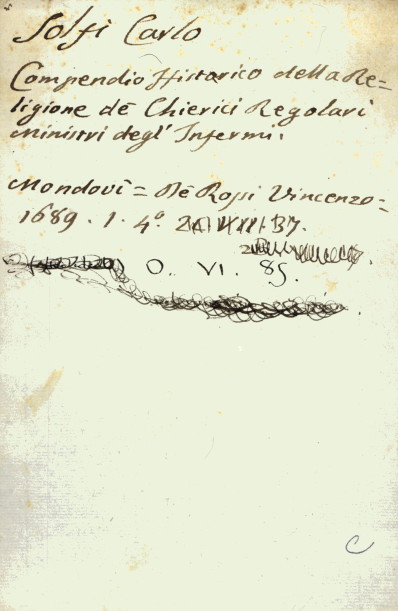 Solfi Carlo
Compendio Historico della Re=
ligione dè Chierici Regolari
Ministri degl' Infermi.
Mondovì = Dè Rossi Vincenzo =
1689. 1. 4.º
O. VI. 85.
C